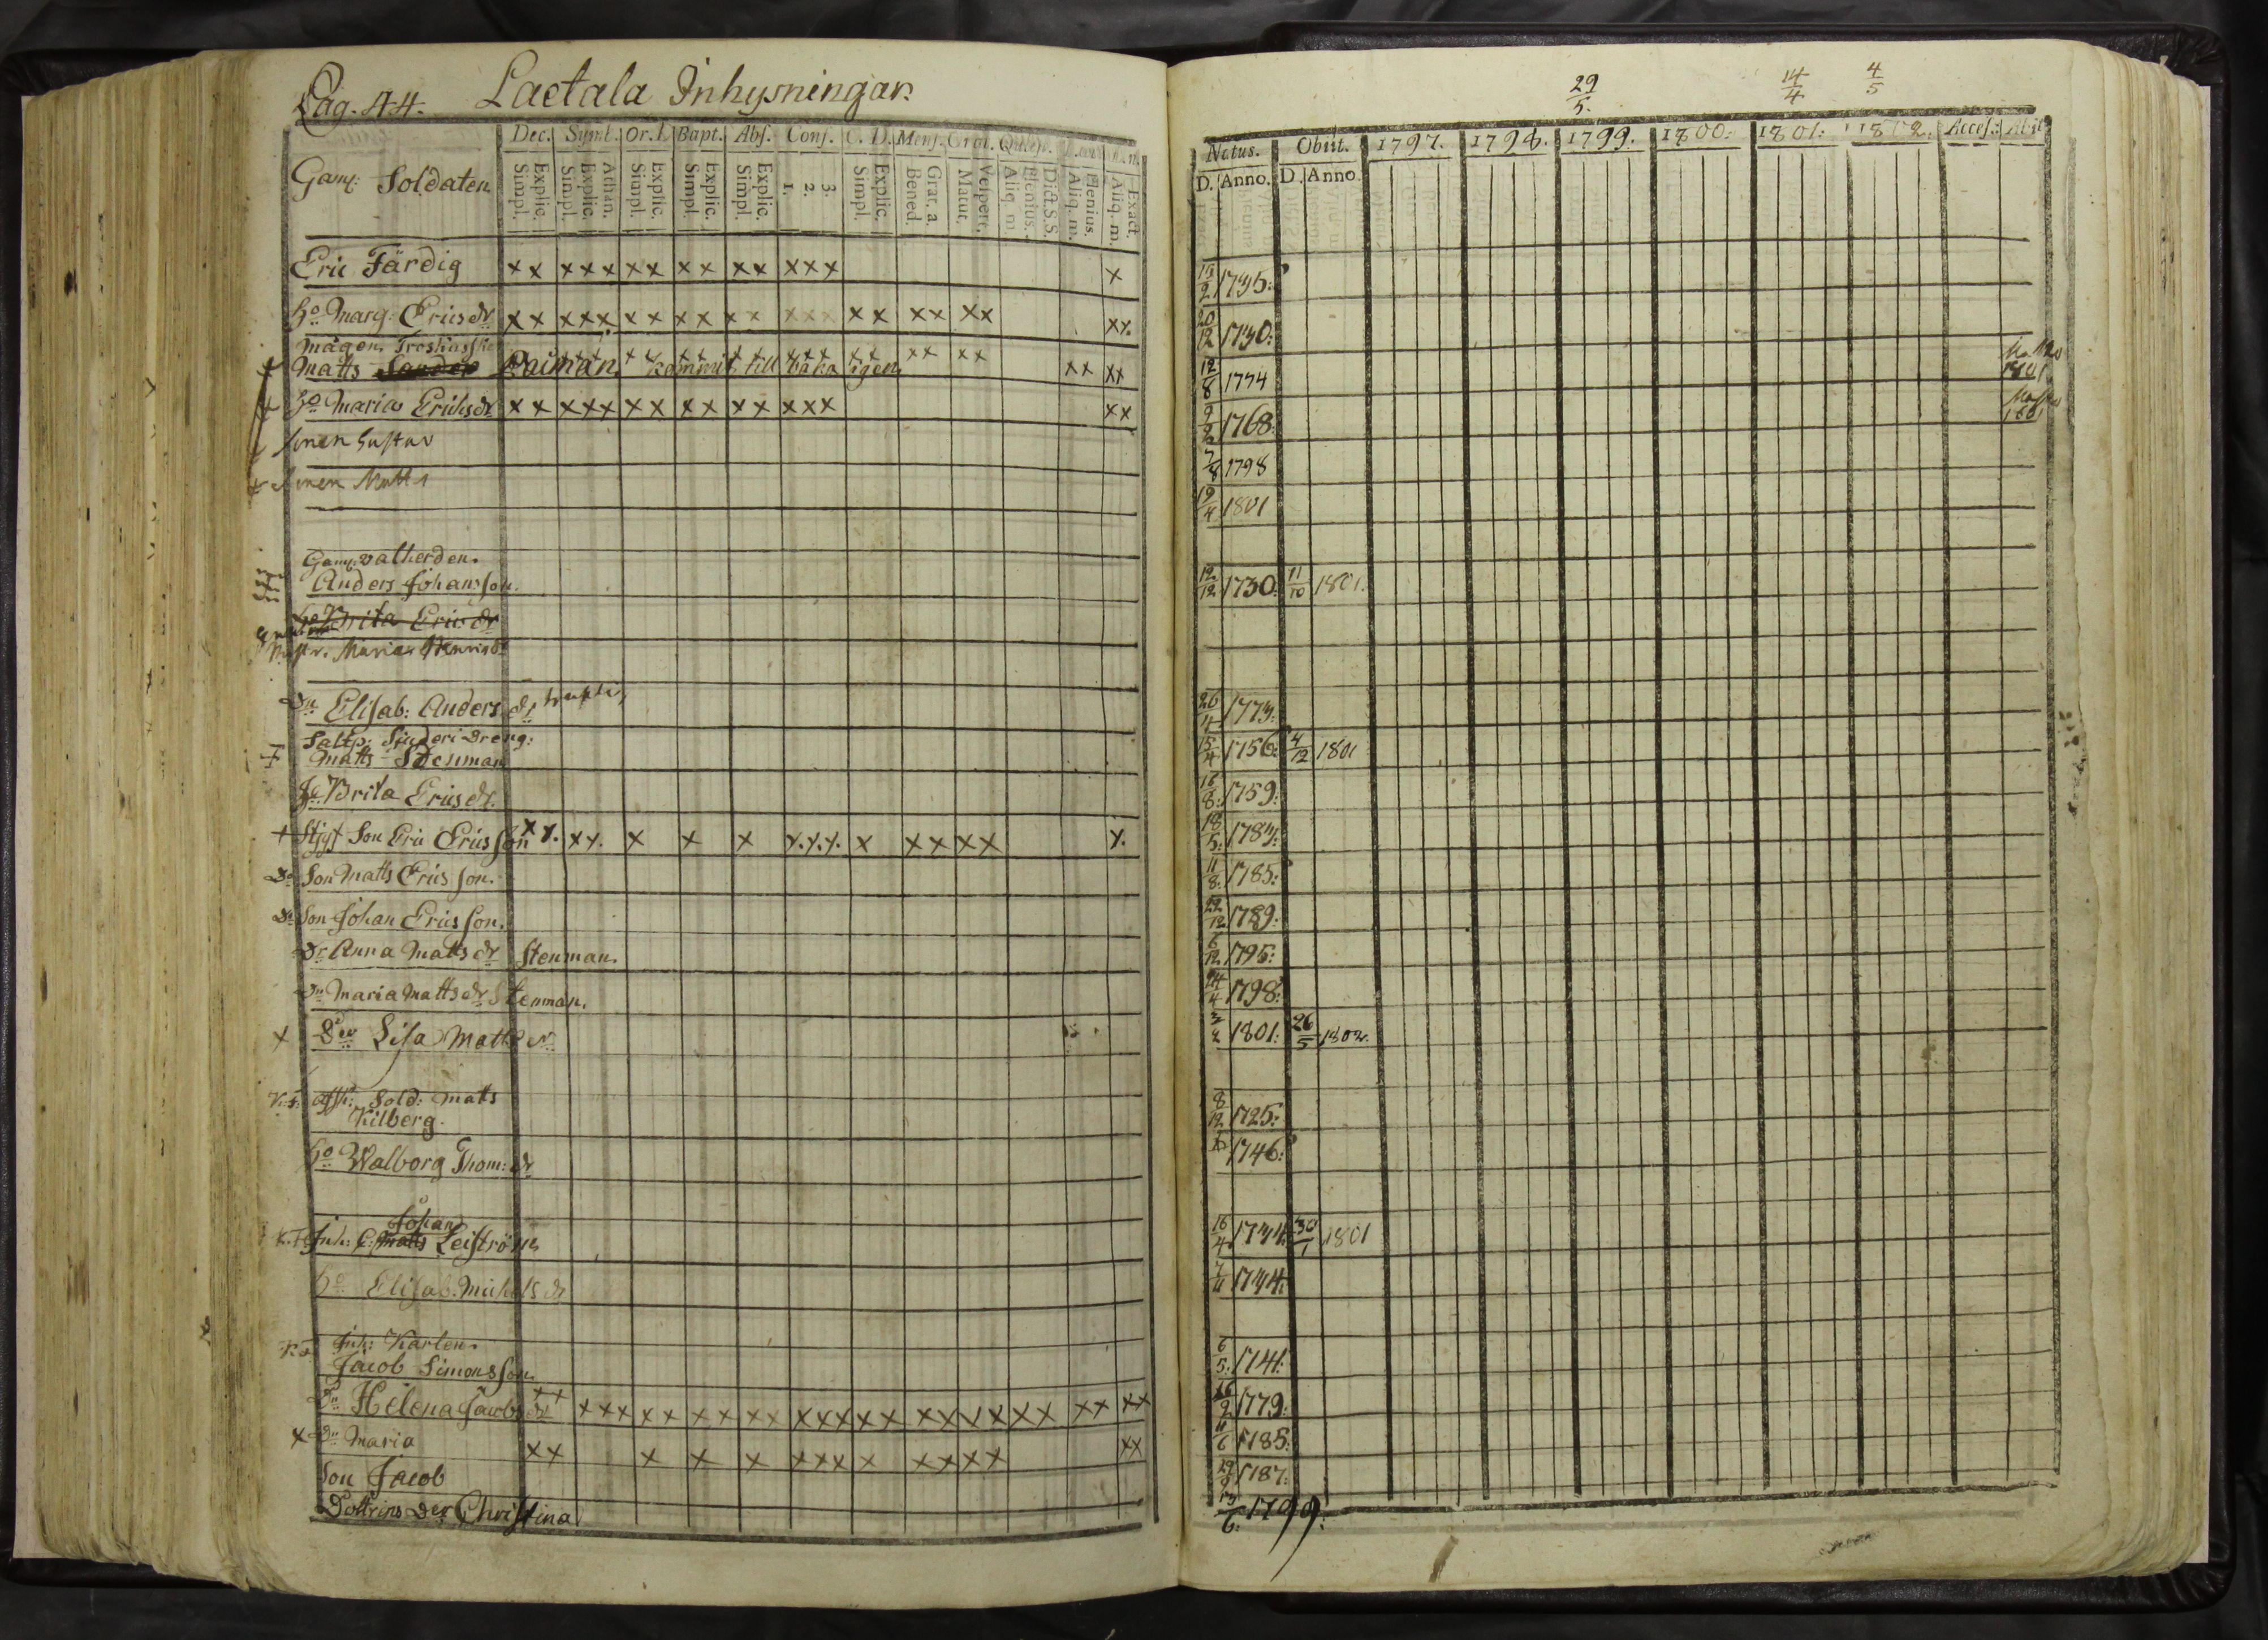 Pag. 44. Laetala Inhysningar.
Dec. Symb. Or. D. Bapt. Abs. Conf. C. D. Mens. Grat. Quaest.
Gam: Soldaten
Explic. Simpl. Athan. Explic. Simpl. Explic. Simpl. Explic. Simpl. Explic. Simpl. 3. 2. 1. Explic. Simpl. Grat. a. Bened. Vespert. Matut. Dict. S. S. Plenius. Aliq. m. Plenius. Aliq. m. Exact. Aliq. m.
Eric Färdig x x x x x x x x x x x x x x x
ho Marg. Ericsdr x x x x x x x x x x x x x x x x x x x x x x.
Mågen
Matts Sander Raiman kommit till baka igen x x x x
ho Maria Erichsdr x x x x x x x x x x x x x x x x
sonen Gustav
sonen Matts
Gam. vatherden.
Anders Johansson.
ho Brita Ericsdr
Maria Henricsdr
Dr Elisab: Andersdr
Saltp: Sjuderi Dreng:
Matts Stenman
ho Brita Ericsdr.
+ Styf Son Eric Ericsson x x. x x. x x x x. x. x. x x x x x x.
Do Son Matts Ericsson.
Do Son Johan Ericsson.
Dr Anna Mattsdr Stenman.
Dr Maria Mattsdr Stenman.
x Dr Lisa Mattsdr
Afsk: Sold: Matts
Kilberg.
ho Walborg Thom: dr
Johan
Inh: Matts Leiström
ho Elisab. Michelsdr
Inh: Karlen.
Jacob Simonsson.
Dr Helena Jacobsdr x x x x x x x x x x x x x x x x x x x x x x x x x x
x Dr Maria x x x x x x x x x x x x x x x
Son Jacob
Dottrens Der Christina
29/5. 14/4 4/5
Natus. Obiit. 1797. 1798. 1799. 1800: 1801: 1802. Acces: Abit
D. Anno. D. Anno
1735:
20/12 1730:
12/8 1774
9/2 1768:
7/8 1798
19/4 1801
12/12 1730: 11/10 1801.
26/4 1773:
15/4 1756: 4/12 1801
16/8: 1759:
18/5: 1783:
11/8: 1785:
22/12 1789:
6/12 1795:
14/4 1798:
1801: 26/5 1802.
8/12 1725:
1746:
16/4 1734: 30/1 1801
1734:
6/5. 1741:
16/2 1779:
11/6 1785:
29/9 1787:
13/6: 1799: